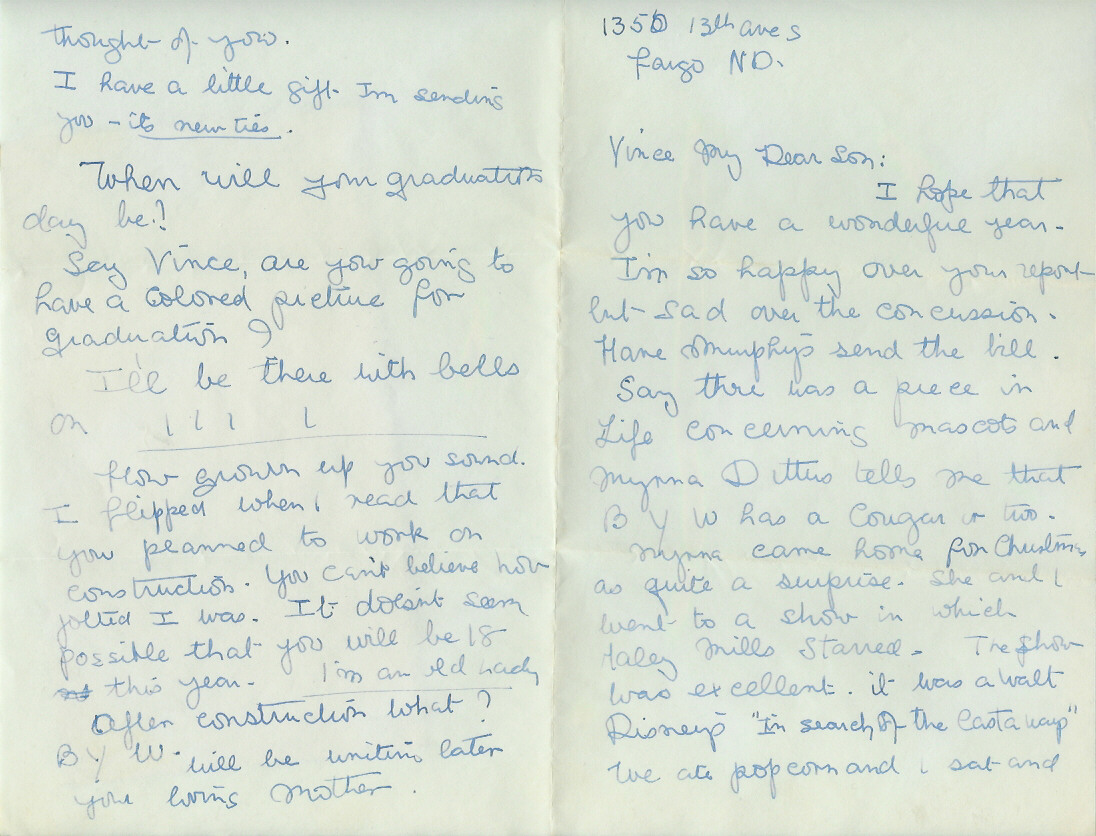 1350 13th ave S
Fargo ND.
Vince My Dear Son:
I hope that
you have a wonderful year.
I'm so happy over your report
but sad over the concussion.
Have Murphy's send the bill.
Say thre was a piece in
Life concerning mascots and
Myrna Dittus tells me that
B Y W has a Cougar or two.
Myrna came home for Christmas
as quite a surprise. She and I
went to a show in which
Haley Mills Starred. The show
was excellent. it was a Walt
Disney's "In search of the Castaways"
We ate popcorn and I sat and
thought of you.
I have a little gift I'm sending
you - its new ties.
When will your graduation
day be?
Say Vince, are you going to
have a colored picture for
graduation?
I'll be there with bells
on
How grown up you sound.
I flipped when I read that
you planned to work on
construction. You can't believe how
jolted I was. It doesn't seem
possible that you will be 18
this year. I'm an old lady
After construction what?
B Y W. will be writing later
your loving Mother.